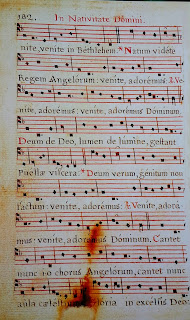 182. In Nativitate Domini.
nite, venite in Bethlehem. * Natum vidéte
Regem Angelorum: venite, adorémus: ℣. Ve
nite, adorémus: venite, adorémus Dóminum.
Deum de Deo, lumen de lumine, gestant
Puellæ víscera. * Deum verum, génitum non
factum: venite, adorémus: ℣. Venite, adoré
mus: venite, adorémus Dóminum. Cantet
nunc io chorus Angelorum, cantet nunc
aula cælestium, glória in excélsis Deo: